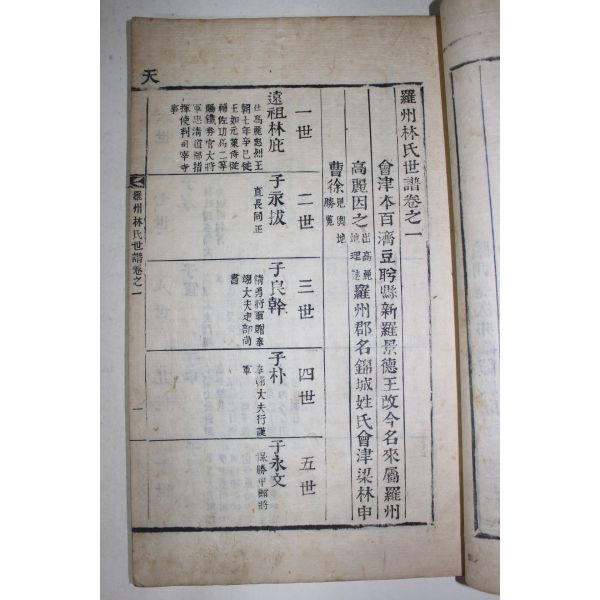 天
羅州林氏世譜卷之一
會津本百濟豆肹縣新羅景德王改今名來屬羅州
高麗因之出高麗地理誌羅州郡名錦城姓氏會津梁林申
曹徐見輿地勝覧
一世
遠祖林庇
仕高麗忠烈王
朝七年爭巳從
王如元策侍從
輔佐功爲二等
賜鐵券官大將
軍忠淸道都指
揮使判司宰寺
事
二世
子永抜
直長同正
三世
子良幹
精勇將軍贈奉
翊大夫吏部尚
書
四世
子朴
奉翊大夫行護
軍
五世
子永文
保勝中郞將
羅州林氏世譜卷之一
一